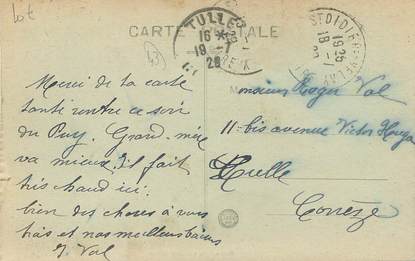 Lot
CARTE POSTALE
43
TULLE
CORREZE
16
19 - 7
26
ST DIDIER
1926
18 - 7
Merci de ta carte
tanti rentre ce soir
du Puy. Grand-mère
va mieux. Il fait
très chaud ici.
bien des choses à vous
trois et nos meilleurs baisers
Y. Val
Monsieur Roger Val
11-bis avenue Victor Hugo
Tulle
Corrèze